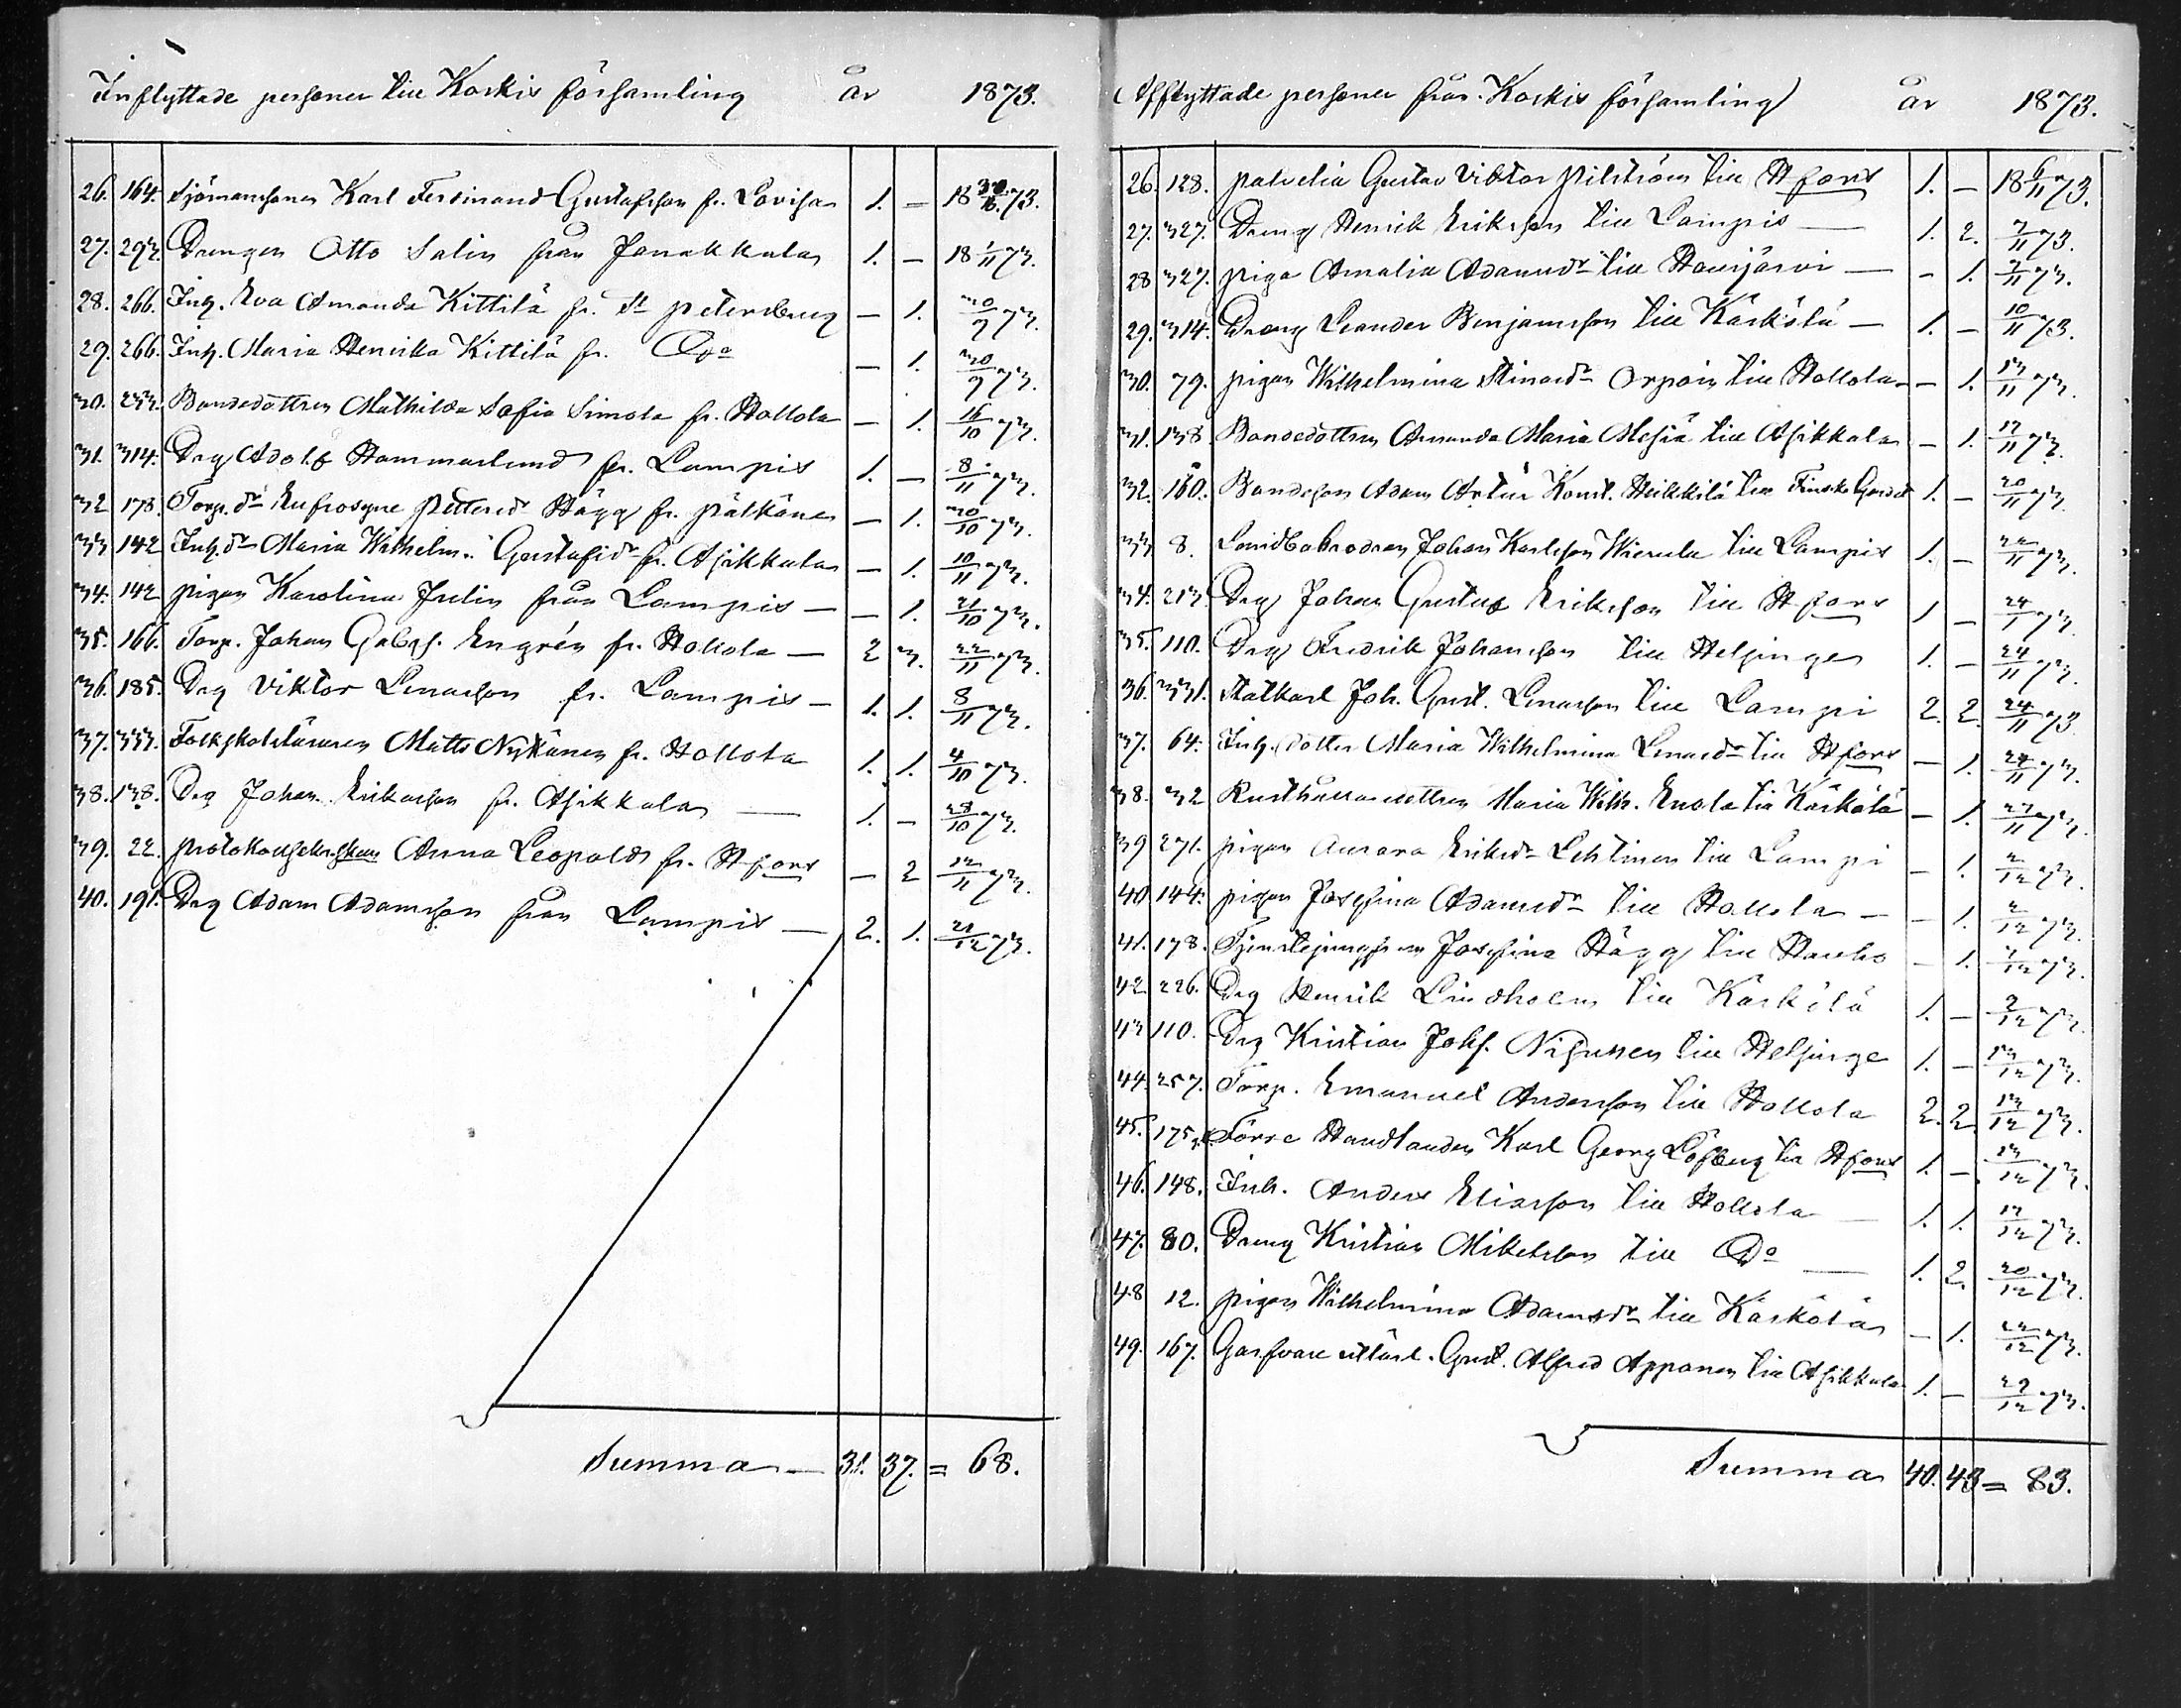 Inflyttade personer till Koskis församling år 1873.
26. 164. Sjömansonen Karl Ferdinand Gustafsson fr. Lovisa 1. — 18 30/10 73.
27. 293. Drengen Otto Salin från Janakkala 1. — 18 1/11 73.
28. 266. Inh. Eva Amanda Kittilä fr. St petersburg — 1. 30/9 73.
29. 266. Inh. Maria Henrika Kittilä fr. Do — 1. 30/9 73.
30. 233. Bondedottren Mathilda Sofia Simola fr. Hollola — 1. 16/10 73.
31. 314. Drg Adolf Hammarlund fr. Lampis 1. — 8/11 73.
32 178. Torp. dr Eufrosyne Pettersdr Hägg fr. pälkäne — 1. 30/10 73.
33 142 Inh. dr Maria Wilhelm. Gustafsdr fr. Asikkala — 1. 10/11 73.
34. 142 pigan Karolina Julin från Lampis — — 1. 21/10 73.
35. 166. Torp. Johan Gabrs. Engrén fr. Hollola — 2 3. 22/11 73.
36. 185. Drg Viktor Lenasson fr. Lampis — 1. 1. 8/11 73.
37. 333. Folkskolläraren Matts Nykänen fr. Hollola 1. 1. 4/10 73.
38. 138. Drg Johan Erikasson fr. Asikkala — 1. — 28/10 73.
39. 22. Anna Leopold fr. Hfors — 2 12/11 73.
40. 191. Drg Adam Adamsson från Lampis — 2. 1. 21/12 73.
Summa — 31. 37. = 68.
Afflyttade personer från Koskis församling år 1873.
26. 128. Gustav Viktor pilström till Hfors 1. — 18 6/11 73.
27. 327. Dreng Henrik Eriksson till Lampis — 1. 2. 7/11 73.
28 327. piga Amalia Adamsdr till Hausjärvi — — 1. 7/11 73.
29. 314. Dreng Leander Benjamsson till Kärkölä — 1. — 10/11 73.
30. 79. pigan Wilhelmina Orpoin till Hollola — — 1. 13/11 73.
31. 138 Bondedottren Amanda Maria till Asikkala — 1. 17/11 73.
32. 160. Bondeson Adam Artur Konst. Heikkilä till Finska Gardet 1. — 20/11 73.
33 8. Landbobrodren Johan Karlsson till Lampis 1. — 22/11 73.
34. 213. Drg Johan Gustaf Eriksson till Hfors 1 — 24/11 73.
35. 110. Drg Fredrik Johansson till Helsinge 1. — 24/11 73.
36. 331. Statkarl Joh. Gust. Lenasson till Lampi 2. 2. 24/11 73
37. 64. Inh. dotter Maria Wilhelmina Lenasdr till Hfors — 1. 24/11 73.
38. 32 Rusthållaredottren Maria Wilh. Enola till Kärkölä — 1. 27/11 73.
39 271. pigan Aurora Eriksdr Lehtinen till Lampi — 1. 2/12 73.
40 144. pigan Josefina Adamsdr till Hollola — — 1. 2/12 73.
41. 178. Tjenstejungfrun Josefina Hägg till Hauho — 1. 1/12 73.
42 226. Drg Henrik Lindholm till Kärkölä 1. — 2/12 73.
43 110. Drg Kristian Johs. till Helsinge 1. — 13/12 73.
44. 257. Torp. Emanuel Andersson till Hollola 2. 2. 13/12 73.
45. 175. Förre Handlanden Karl Georg Löfberg till Hfors 1. — 13/12 73.
46. 148. Inh. Anders Eliasson till Hollola — 1. 1. 17/12 73.
47. 80. Dreng Kristian Mikelsson till Do — 1. 2. 20/12 73.
48 12. pigan Wilhelmina Adamsdr till Kärkölä — 1. 22/12 73.
49. 167. Garfvare Gust. Alfred Apponen till Asikkala 1. — 29/12 73.
Summa 40. 43 = 83.